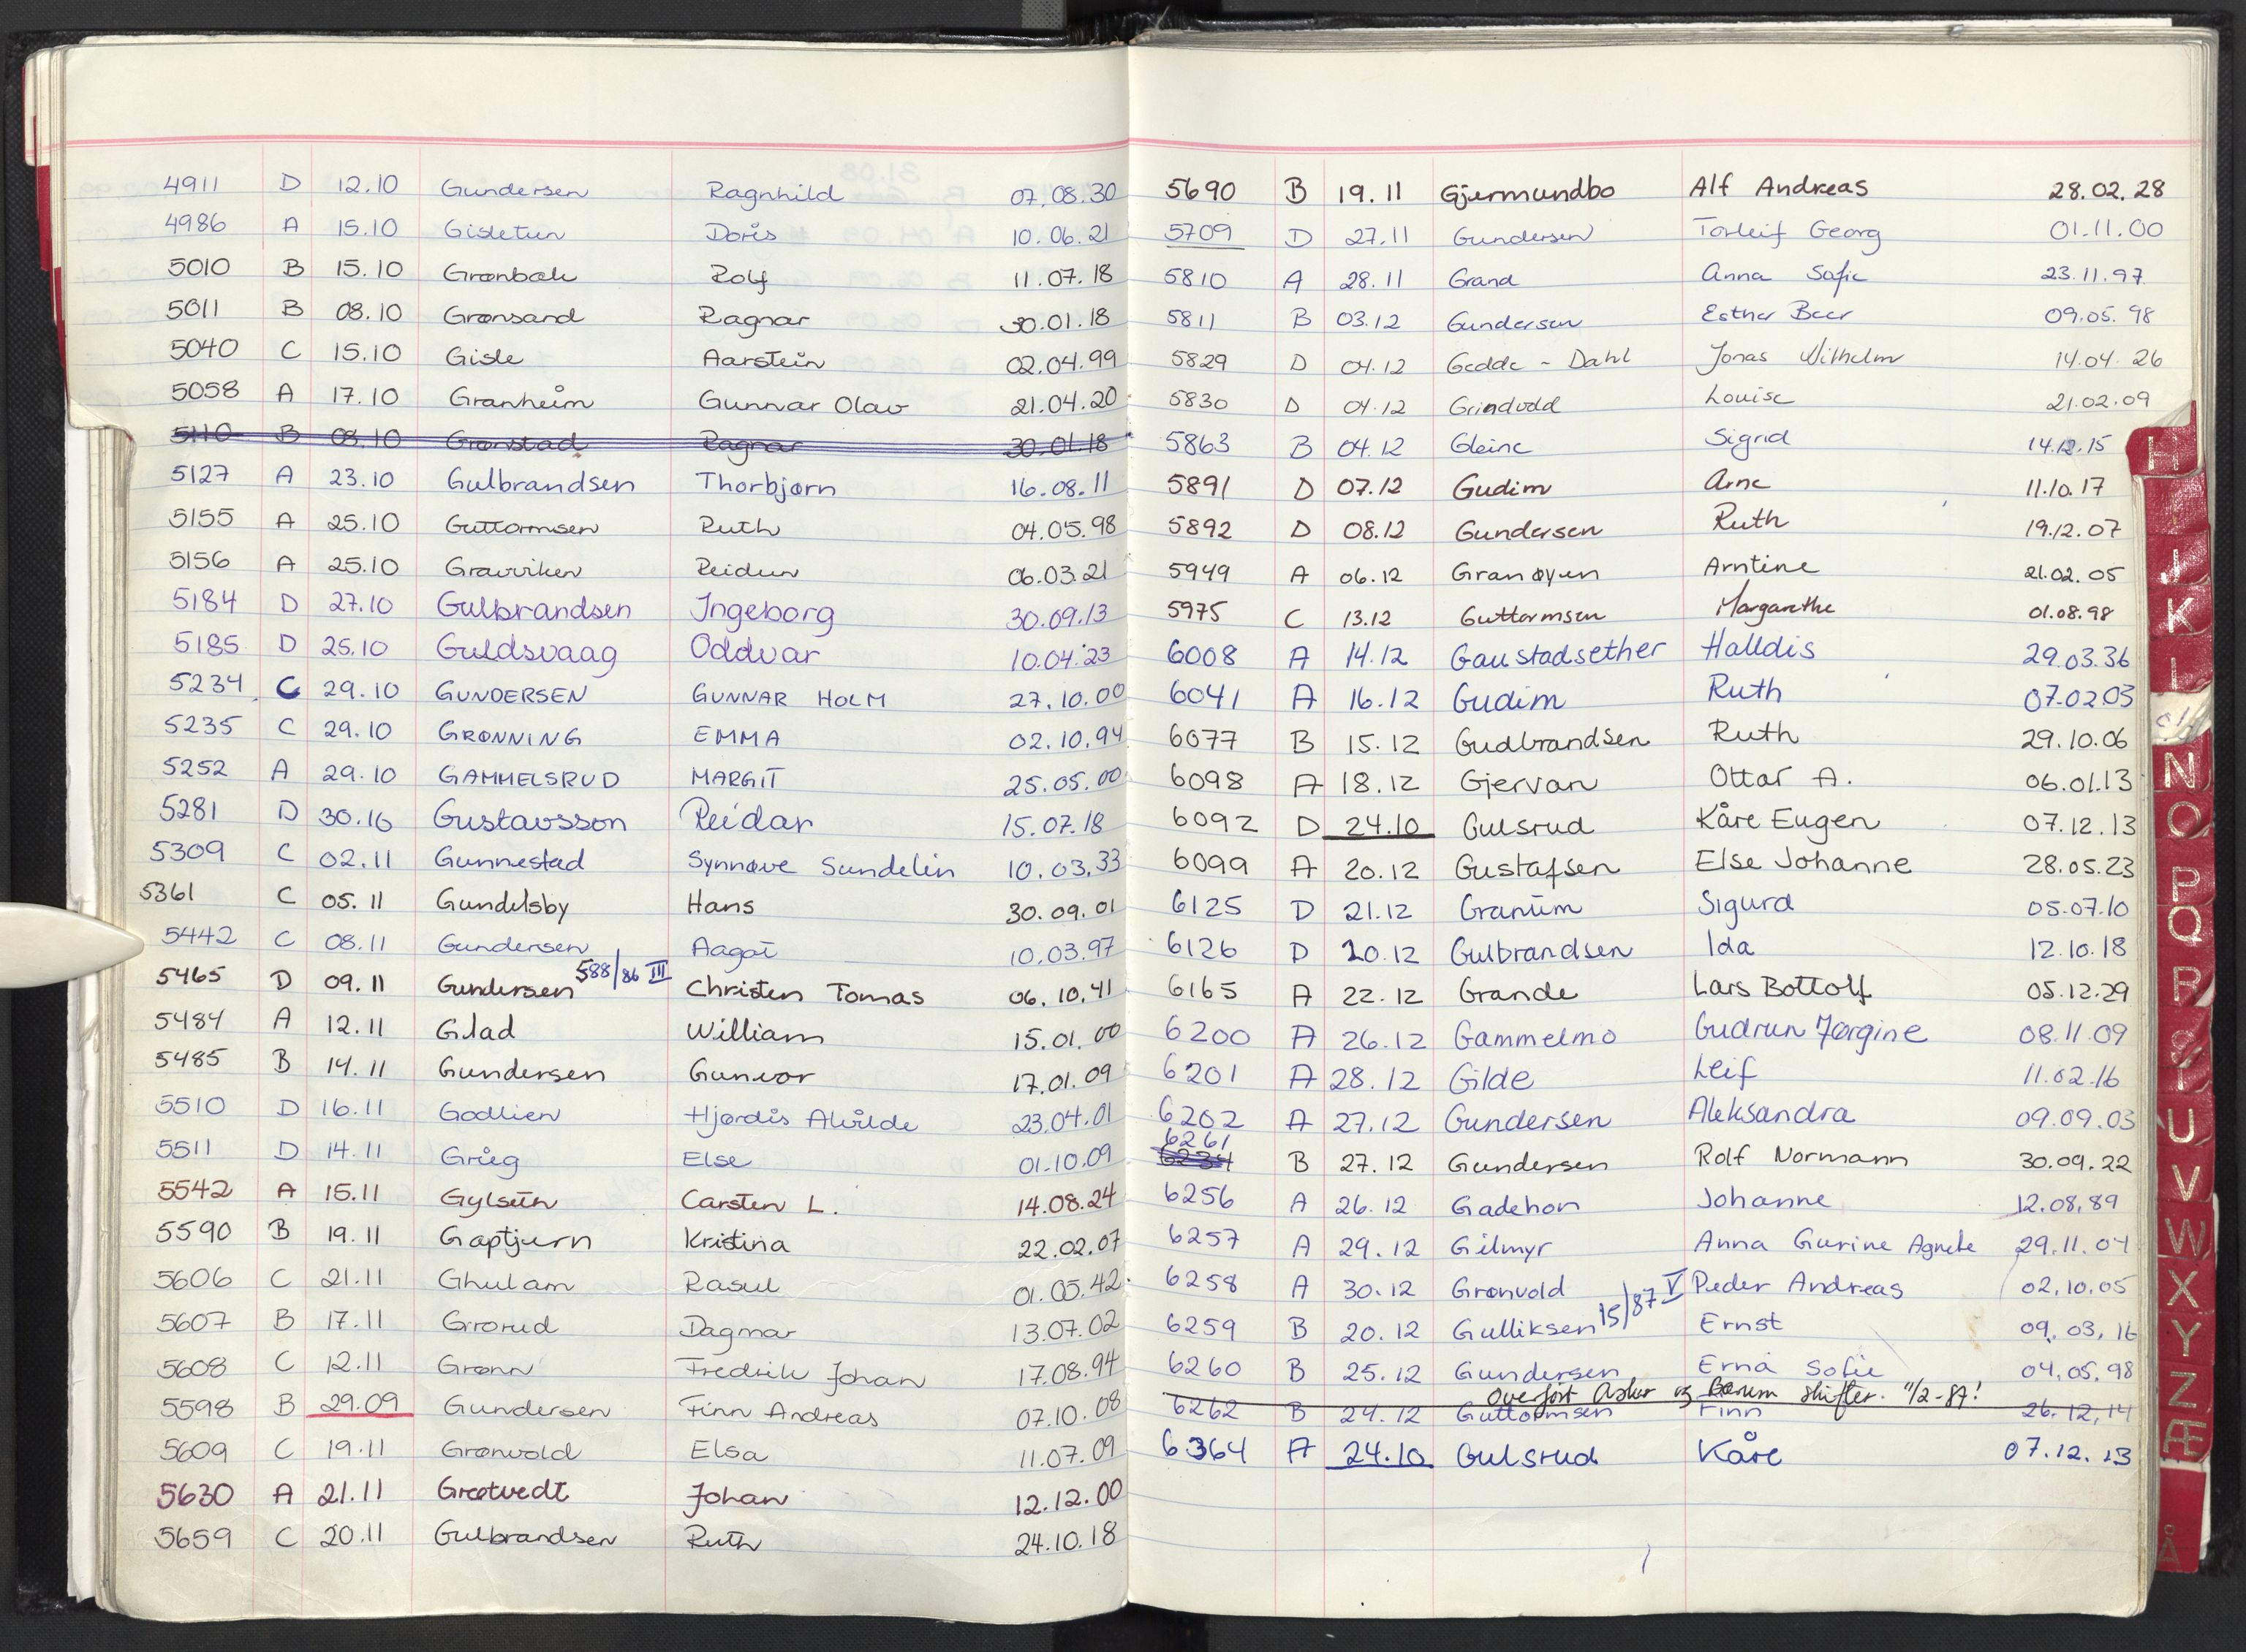 4911 D 12.10 Gundersen Ragnhild 07.08.30
4986 A 15.10 Gisletun Doris 10.06.21
5010 B 15.10 Grønbæk Rolf 11.07.18
5011 B 08.10 Grønsand Ragnar 30.01.18
5040 C 15.10 Gisle Aarstein 02.04.99
5058 A 17.10 Granheim Gunnar Olav 21.04.20
5110 B 08.10 Grønstad Ragnar 30.01.18
5127 A 23.10 Gulbrandsen Thorbjørn 16.08.11
5155 A 25.10 Guttormsen Ruth 04.05.98
5156 A 25.10 Gravviken Reidun 06.03.21
5184 D 27.10 Gulbrandsen Ingeborg 30.09.13
5185 D 25.10 Guldsvaag Oddvar 10.04.23
5234 C 29.10 GUNDERSEN GUNNAR HOLM 27.10.00
5235 C 29.10 GRØNNING EMMA 02.10.94
5252 A 29.10 GAMMELSRUD MARGIT 25.05.00
5281 D 30.16 Gustavsson Reidar 15.07.18
5309 C 02.11 Gunnestad Synnøve Sundelin 10.03.33
5361 C 05.11 Gundelsby Hans 30.09.01
5442 C 08.11 Gundersen Aagot 10.03.97
5465 D 09.11 Gundersen 588/86 III Christen Tomas 06.10.41
5484 A 12.11 Gilad William 15.01.00
5485 B 14.11 Gundersen Gunvor 17.01.09
5510 D 16.11 Godlien Hjørdis Alvilde 23.04.01
5511 D 14.11 Grieg Else 01.10.09
5542 A 15.11 Gylseth Carsten L. 14.08.24
5590 B 19.11 Gaptjern Kristina 22.02.07
5606 C 21.11 Ghulam Rasul 01.05.42
5607 B 17.11 Grorud Dagmar 13.07.02
5608 C 12.11 Grønn Fredrik Johan 17.08.94
5598 B 29.09 Gundersen Finn Andreas 07.10.08
5609 C 19.11 Grønvold Elsa 11.07.09
5630 A 21.11 Grøtvedt Johan 12.12.00
5659 C 20.11 Gulbrandsen Ruth 24.10.18
5690 B 19.11 Gjermundbo Alf Andreas 28.02.28
5709 D 27.11 Gundersen Torleif Georg 01.11.00
5810 A 28.11 Grand Anna Sofie 23.11.97
5811 B 03.12 Gundersen Esther Beer 09.05.98
5829 D 04.12 Gedde - Dahl Jonas Wilhelm 14.04.26
5830 D 04.12 Grindvold Louise 21.02.09
5863 B 04.12 Gleine Sigrid 14.12.15
5891 D 07.12 Gudim Arne 11.10.17
5892 D 08.12 Gundersen Ruth 19.12.07
5949 A 06.12 Granøyen Arntine 21.02.05
5975 C 13.12 Guttormsen Margarethe 01.08.98
6008 A 14.12 Gaustadsether Halldis 29.03.36
6041 A 16.12 Gudim Ruth 07.02.03
6077 B 15.12 Gudbrandsen Ruth 29.10.06
6098 A 18.12 Gjervan Ottar A. 06.01.13
6092 D 24.10 Gulsrud Kåre Eugen 07.12.13
6099 A 20.12 Gustafsen Else Johanne 28.05.23
6125 D 21.12 Granum Sigurd 05.07.10
6126 D 20.12 Gulbrandsen Ida 12.10.18
6165 A 22.12 Grande Lars Bottolf 05.12.29
6200 A 26.12 Gammelmo Gudrun Jørgine 08.11.09
6201 A 28.12 Gilde Leif 11.02.16
6202 A 27.12 Gundersen Aleksandra 09.09.03
6261
B 27.12 Gundersen Rolf Normann 30.09.22
6256 A 26.12 Gadehon Johanne 12.08.89
6257 A 29.12 Gilmyr Anna Gurine Agnete 29.11.04
6258 A 30.12 Grønvold Peder Andreas 02.10.05
6259 B 20.12 Gulliksen 15/87 V Ernst 09.03.16
6260 B 25.12 Gundersen Erna Sofie 04.05.98
Overført Asker og Bærum skifter. 11/2-87!
6262 B 24.12 Guttormsen Finn 26.12.14
6364 A 24.10 Gulsrud Kåre 07.12.13
H
J
K
L
N
O
P
Q
R
S
T
U
V
W
X
Y
Z
Æ
Å